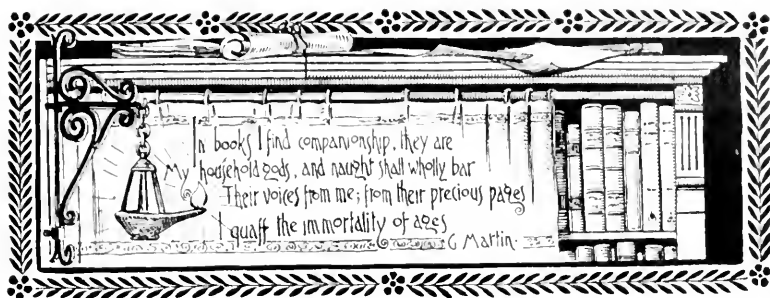 In books I find companionship, they are
My household gods, and naught shall wholly bar
Their voices from me; from their precious pages
I quaff the immortality of ages
G Martin.